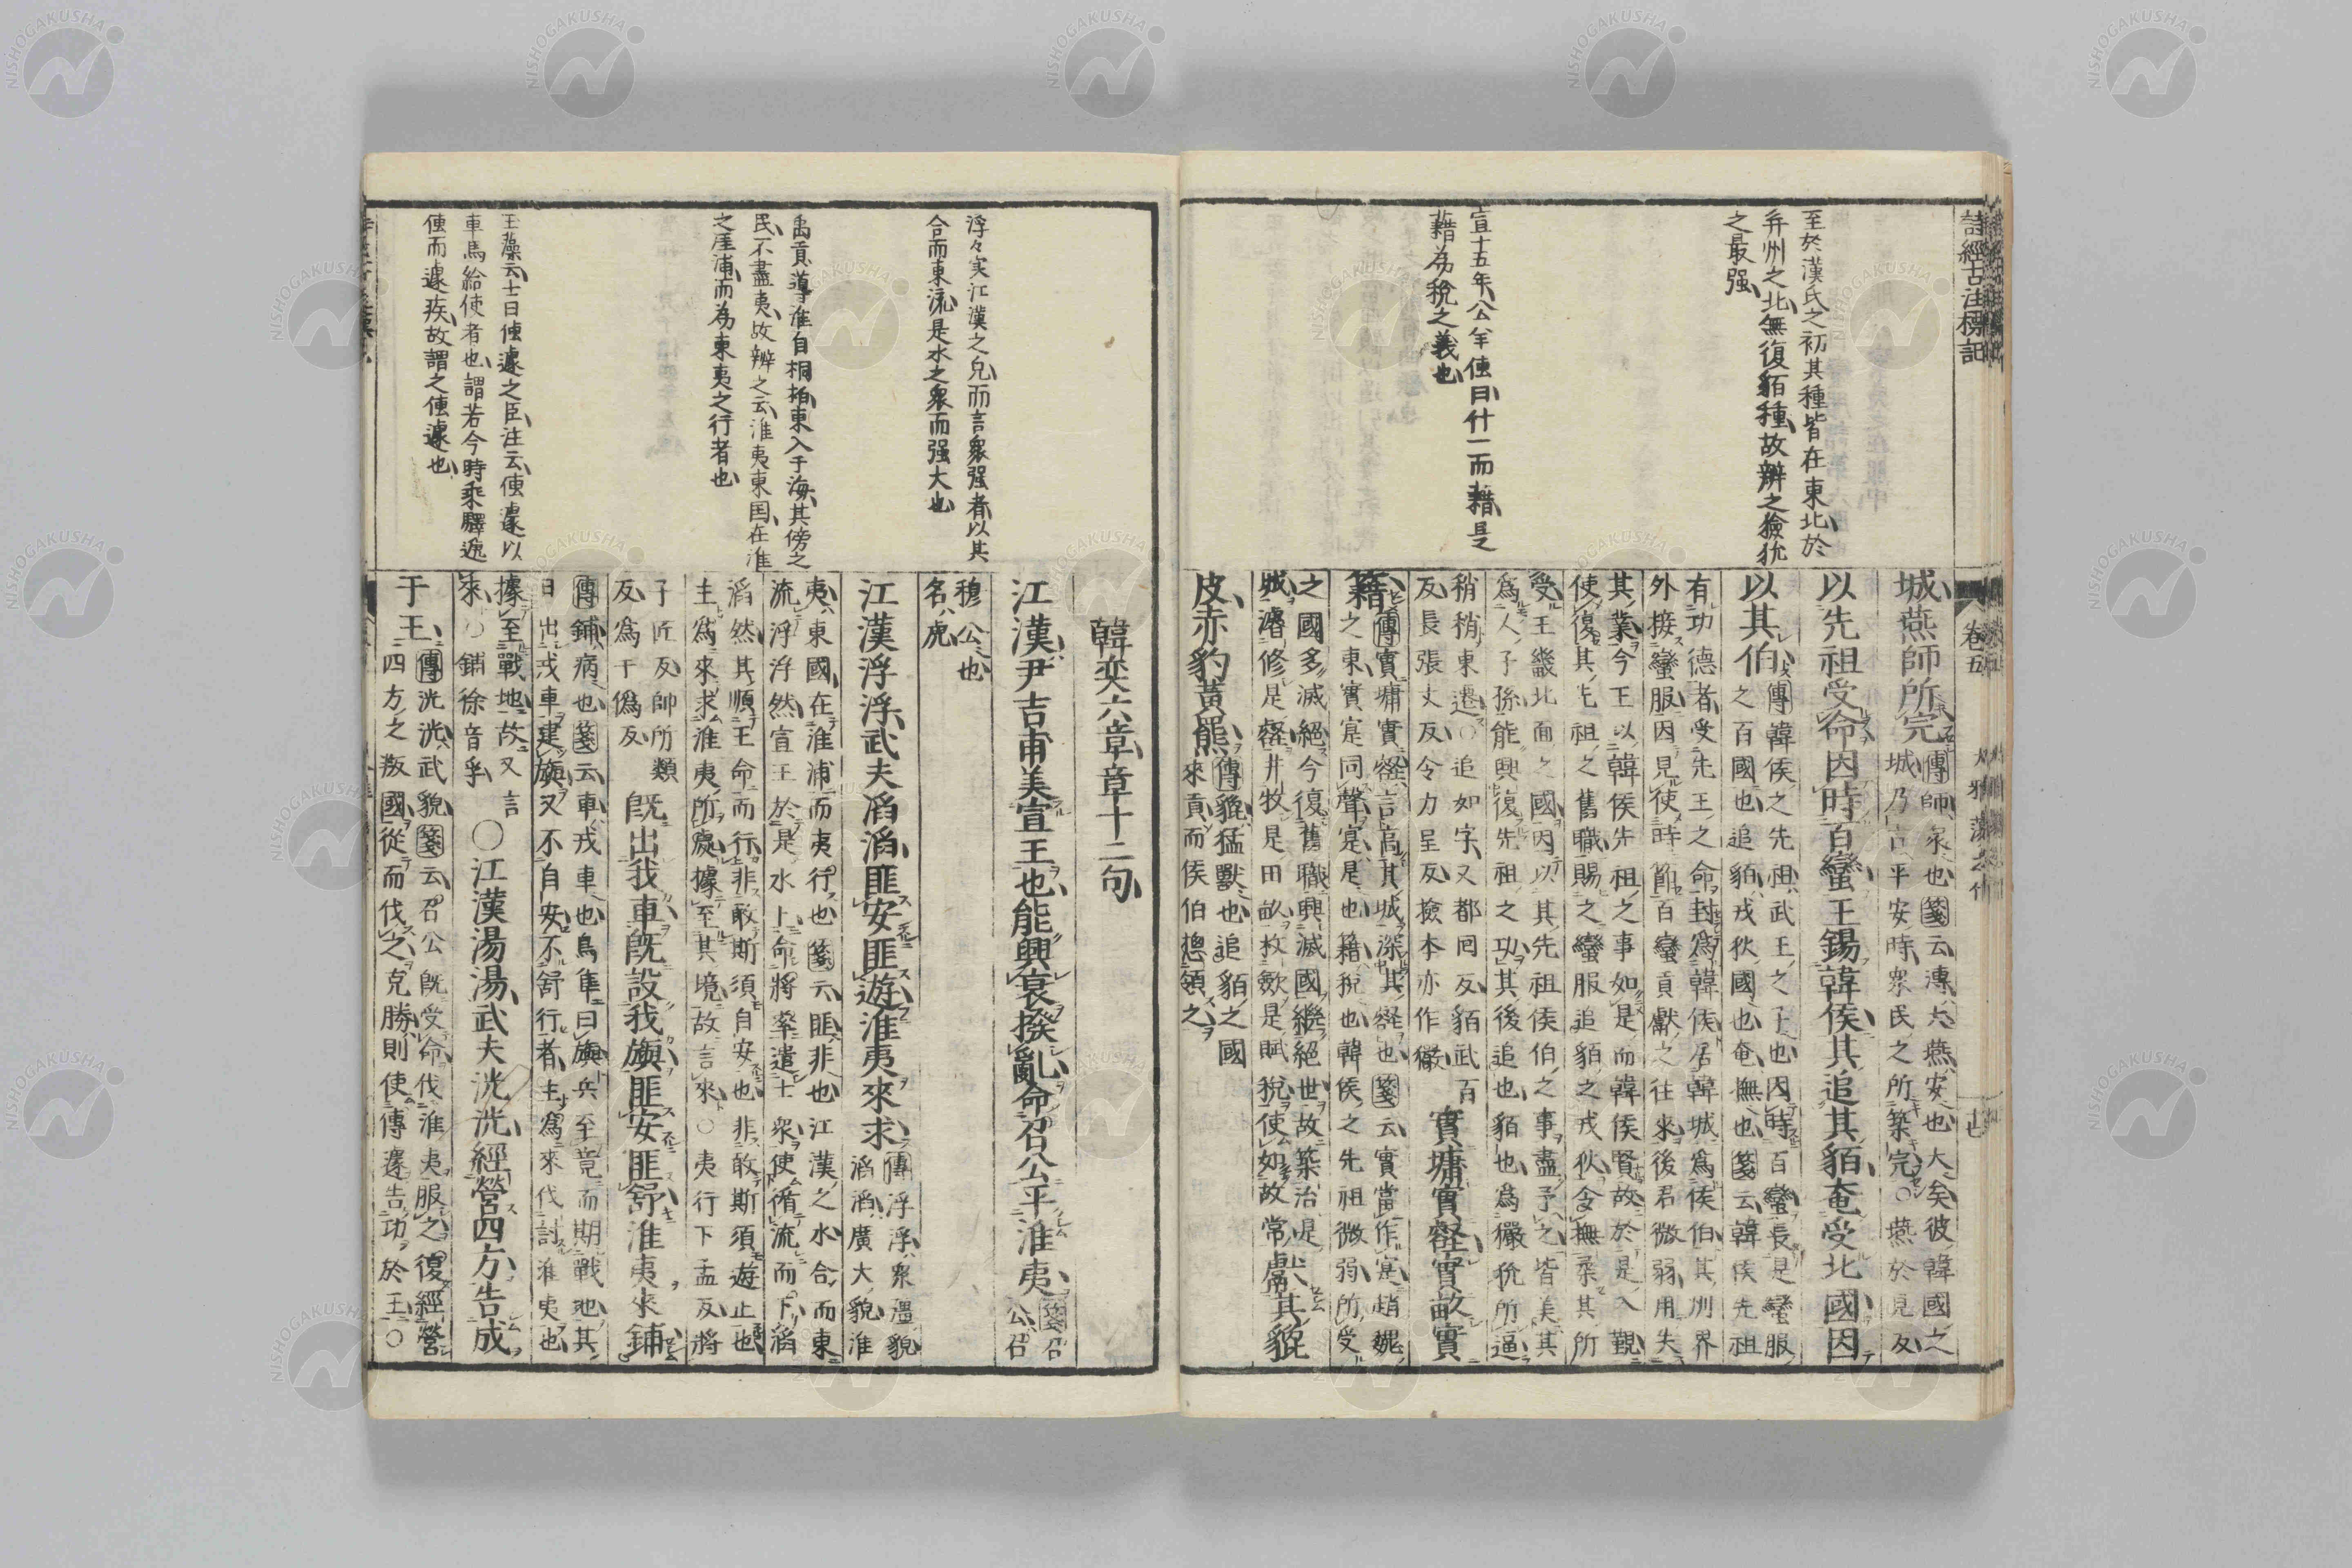 詩經古注標記
卷五
大雅蕩之什
至於漢氏之初其種皆在東北於
并州之北無復貊種故辨之獫狁
之最强
宣十五年公羊傳曰什一而藉是
藉為稅之義也
城燕師所完傳師衆也箋云溥大燕安也大矣彼韓國之
城乃古平安時衆民之所築完○燕於見反
以先祖受命因時百蠻王錫韓侯其追其貊奄受北國因
以其伯傳韓侯之先祖武王之子也因時百蠻長是蠻服
之百國也追貊戎狄國也奄撫也箋云韓侯先祖
有功德者受先王之命封爲韓侯居韓城爲侯伯其州界
外接蠻服因見使時節百蠻貢獻之往來後君微弱用失
其業今王以韓侯先祖之事如是而韓侯賢故於是入覲
使復其先祖之舊職賜之蠻服追貊之戎狄令撫柔其所
受王畿北面之國因以其先祖侯伯之事盡予之皆美其
爲人子孫能興復先祖之功其後追也貊也爲玁狁所逼
稍稍東遷○追如字又都囘反貊武百
反長張丈反令力呈反獫本亦作玁
實墉實壑實畝實
籍傳實墉實壑言高其城深其壑也箋云實當作寔趙魏
之東實寔同聲寔是也籍稅也韓侯之先祖微弱所受
之國多滅絕今復舊職興滅國繼絕世故築治是
城濬修是壑井牧是田畝收斂是賦稅使如故常
獻其貔
皮赤豹黃羆傳貔猛獸也追貊之國
來貢而侯伯總領之
浮々実江漢之皃而言衆强者以其
合而東流是水之衆而强大也
禹貢導淮自桐柏東入于海其傍之
民不盡夷故辨之云淮夷東国在淮
之厓浦而為東夷之行者也
玉藻云士曰傳遽之臣注云傳遽以
車馬給使者也謂若今時乘驛逓
傳而遽疾故謂之傳遽也
韓奕六章章十二句
江漢尹吉甫美宣王也能興衰撥亂命召公平淮夷箋召公召
穆公也
名虎
江漢浮浮武夫滔滔匪安匪遊淮夷來求傳浮浮衆彊貌
滔滔廣大貌淮
夷東國在淮浦而夷行也箋云匪非也江漢之水合而東
流浮浮然宣王於是水上命將率遣士衆使循流而下滔
滔然其順王命而行非敢斯須自安也非敢斯須遊止也
主爲來求淮夷所處據至其境故言來○夷行下孟反將
子匠反帥所類
反爲于僞反
旣出我車旣設我旟匪安匪舒淮夷來鋪
傳鋪病也箋云車戎車也鳥隼曰旟兵至竟而期戰地其
日出戎車建旟又不自安不舒行者主爲來伐討淮夷也
據至戰地故又言
來○鋪徐音孚
○江漢湯湯武夫洸洸經營四方告成
于王傳洸洸武貌箋云召公旣受命伐淮夷服之復經營
四方之叛國從而伐之克勝則使傳遽告功於王○